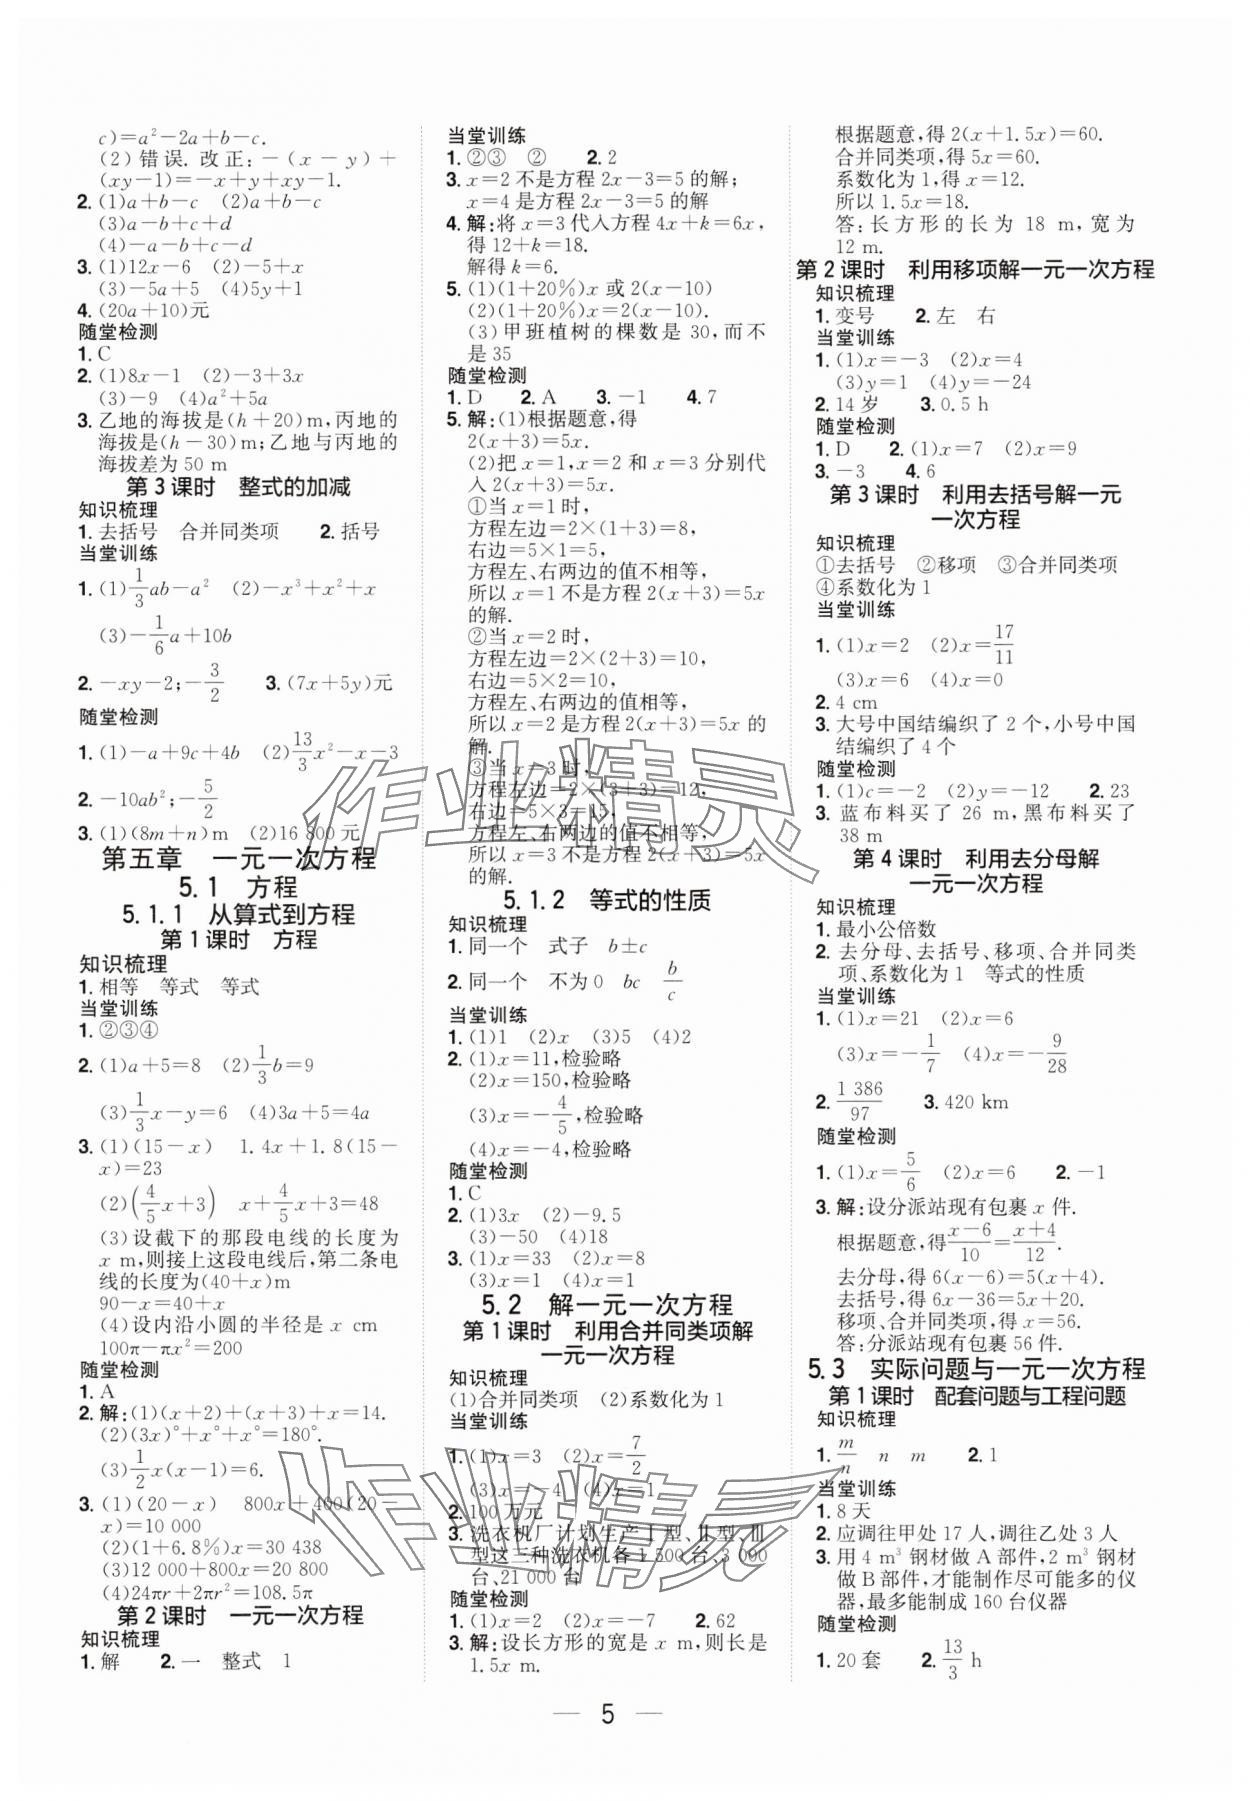 c)=a²-2a+b-c.
(2)错误. 改正: -(x-y)+
(xy-1)=-x+y+xy-1.
2. (1)a+b-c (2)a+b-c
(3)a-b+c+d
(4)-a-b+c-d
3. (1)12x-6 (2)-5+x
(3)-5a+5 (4)5y+1
4. (20a+10)元
随堂检测
1. C
2. (1)8x-1 (2)-3+3x
(3)-9 (4)a²+5a
3. 乙地的海拔是(h+20)m,丙地的
海拔是(h-30)m;乙地与丙地的
海拔差为50 m
第3课时 整式的加减
知识梳理
1. 去括号 合并同类项 2. 括号
当堂训练
1. (1)1/3ab-a² (2)-x³+x²+x
(3)-1/6a+10b
2. -xy-2;-3/2 3. (7x+5y)元
随堂检测
1. (1)-a+9c+4b (2)13/3x²-x-3
2. -10ab²;-5/2
3. (1)(8m+n)m (2)16 800元
第五章 一元一次方程
5.1 方程
5.1.1 从算式到方程
第1课时 方程
知识梳理
1. 相等 等式 等式
当堂训练
1. ②③④
2. (1)a+5=8 (2)1/3b=9
(3)1/3x-y=6 (4)3a+5=4a
3. (1)(15-x) 1.4x+1.8(15-
x)=23
(2)(4/5x+3) x+4/5x+3=48
(3)设截下的那段电线的长度为
x m,则接上这段电线后,第二条电
线的长度为(40+x)m
90-x=40+x
(4)设内沿小圆的半径是x cm
100π-πx²=200
随堂检测
1. A
2. 解:(1)(x+2)+(x+3)+x=14.
(2)(3x)°+x°+x°=180°.
(3)1/2x(x-1)=6.
3. (1)(20-x) 800x+400(20-
x)=10 000
(2)(1+6.8%)x=30 438
(3)12 000+800x=20 800
(4)24πr+2πr²=108.5π
第2课时 一元一次方程
知识梳理
1. 解 2. 一 整式 1
当堂训练
1. ②③ ② 2. 2
3. x=2不是方程2x-3=5的解;
x=4是方程2x-3=5的解
4. 解:将x=3代入方程4x+k=6x,
得12+k=18.
解得k=6.
5. (1)(1+20%)x或2(x-10)
(2)(1+20%)x=2(x-10).
(3)甲班植树的棵数是30,而不
是35
随堂检测
1. D 2. A 3. -1 4. 7
5. 解:(1)根据题意,得
2(x+3)=5x.
(2)把x=1,x=2和x=3分别代
入2(x+3)=5x.
①当x=1时,
方程左边=2×(1+3)=8,
右边=5×1=5,
方程左、右两边的值不相等,
所以x=1不是方程2(x+3)=5x
的解.
②当x=2时,
方程左边=2×(2+3)=10,
右边=5×2=10,
方程左、右两边的值相等,
所以x=2是方程2(x+3)=5x的
解.
③当x=3时,
方程左边=2×(3+3)=12,
右边=5×3=15,
方程左、右两边的值不相等,
所以x=3不是方程2(x+3)=5x
的解.
5.1.2 等式的性质
知识梳理
1. 同一个 式子 b±c
2. 同一个 不为0 bc b/c
当堂训练
1. (1)1 (2)x (3)5 (4)2
2. (1)x=11,检验略
(2)x=150,检验略
(3)x=-4/5,检验略
(4)x=-4,检验略
随堂检测
1. C
2. (1)3x (2)-9.5
(3)-50 (4)18
3. (1)x=33 (2)x=8
(3)x=1 (4)x=1
5.2 解一元一次方程
第1课时 利用合并同类项解
一元一次方程
知识梳理
(1)合并同类项 (2)系数化为1
当堂训练
1. (1)x=3 (2)x=7/2
(3)x=-4 (4)x=1
2. 100万元
3. 洗衣机厂计划生产Ⅰ型、Ⅱ型、Ⅲ
型这三种洗衣机各1 500台、3 000
台、21 000台
随堂检测
1. (1)x=2 (2)x=-7 2. 62
3. 解:设长方形的宽是x m,则长是
1.5x m.
根据题意,得2(x+1.5x)=60.
合并同类项,得5x=60.
系数化为1,得x=12.
所以1.5x=18.
答:长方形的长为18 m,宽为
12 m.
第2课时 利用移项解一元一次方程
知识梳理
1. 变号 2. 左 右
当堂训练
1. (1)x=-3 (2)x=4
(3)y=1 (4)y=-24
2. 14岁 3. 0.5 h
随堂检测
1. D 2. (1)x=7 (2)x=9
3. -3 4. 6
第3课时 利用去括号解一元
一次方程
知识梳理
①去括号 ②移项 ③合并同类项
④系数化为1
当堂训练
1. (1)x=2 (2)x=17/11
(3)x=6 (4)x=0
2. 4 cm
3. 大号中国结编织了2个,小号中国
结编织了4个
随堂检测
1. (1)c=-2 (2)y=-12 2. 23
3. 蓝布料买了26 m,黑布料买了
38 m
第4课时 利用去分母解
一元一次方程
知识梳理
1. 最小公倍数
2. 去分母、去括号、移项、合并同类
项、系数化为1 等式的性质
当堂训练
1. (1)x=21 (2)x=6
(3)x=-1/7 (4)x=-9/28
2. 1 386/97 3. 420 km
随堂检测
1. (1)x=5/6 (2)x=6 2. -1
3. 解:设分派站现有包裹x件.
根据题意,得(x-6)/10=(x+4)/12.
去分母,得6(x-6)=5(x+4).
去括号,得6x-36=5x+20.
移项、合并同类项,得x=56.
答:分派站现有包裹56件.
5.3 实际问题与一元一次方程
第1课时 配套问题与工程问题
知识梳理
1. m/n n m 2. 1
当堂训练
1. 8天
2. 应调往甲处17人,调往乙处3人
3. 用4 m³钢材做A部件,2 m³钢材
做B部件,才能制作尽可能多的仪
器,最多能制成160台仪器
随堂检测
1. 20套 2. 13/3 h
— 5 —
作业精灵
作业精灵